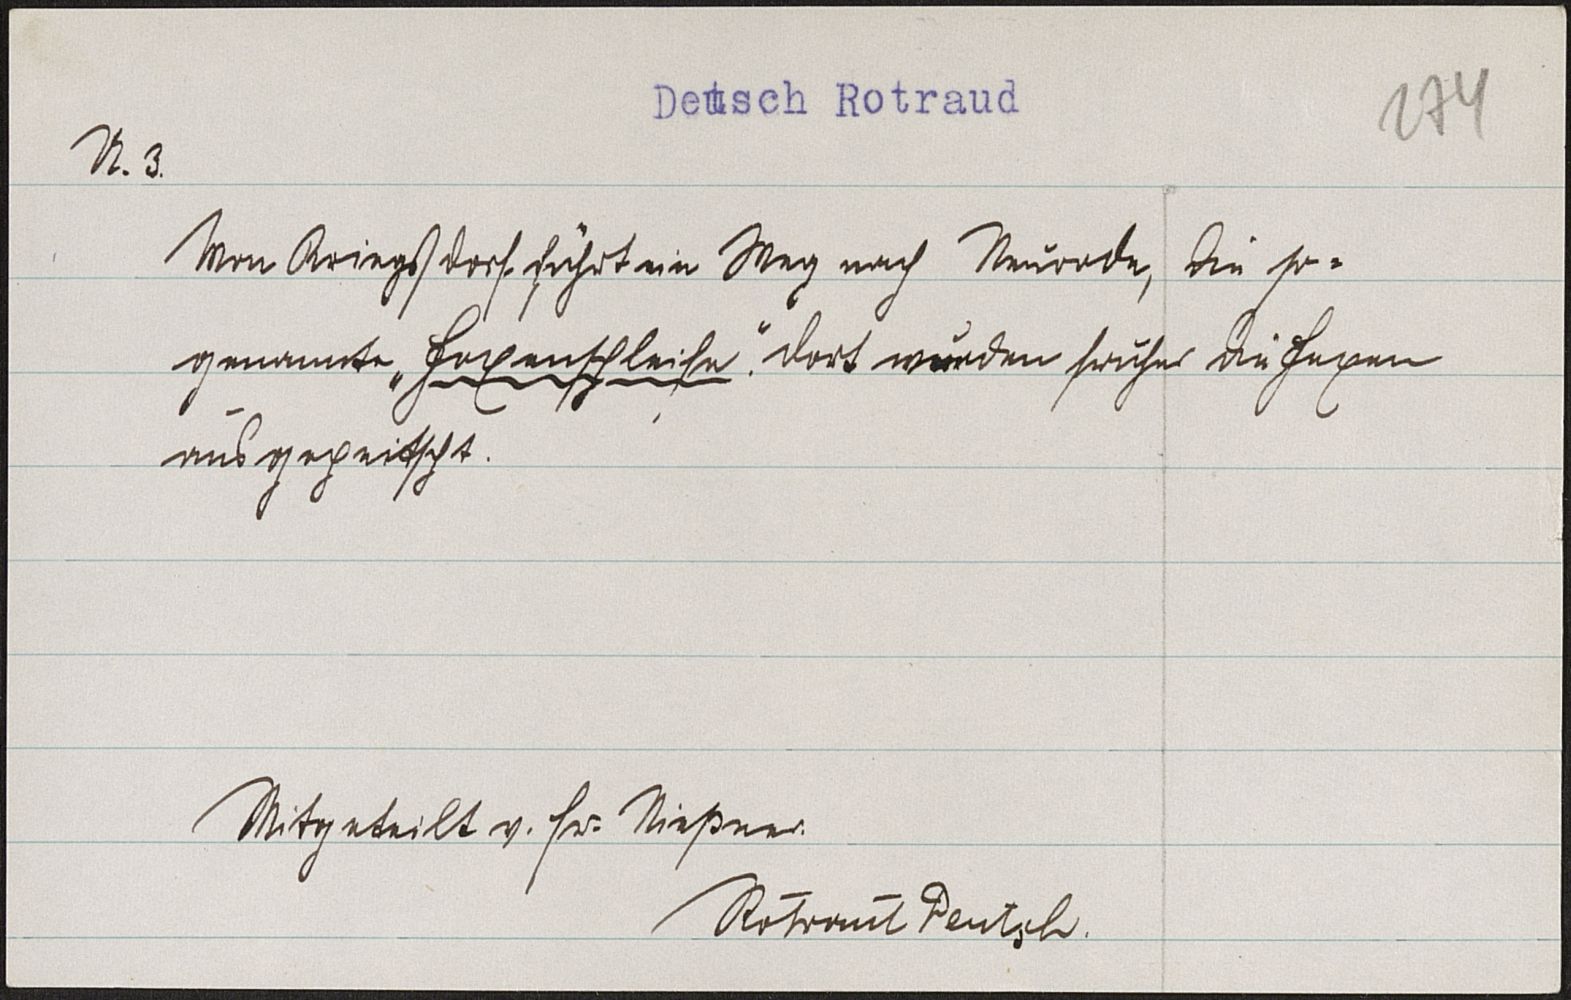 Deutsch Rotraud
274
N. 3.
Von Kriegsdorf führt ein Weg nach Neurode, die so-
genannte „Hexenschleife“. Dort wurden früher die Hexen
ausgepeitscht.
Mitgeteilt v. Fr. Nießner.
Rotraut Deutsch.